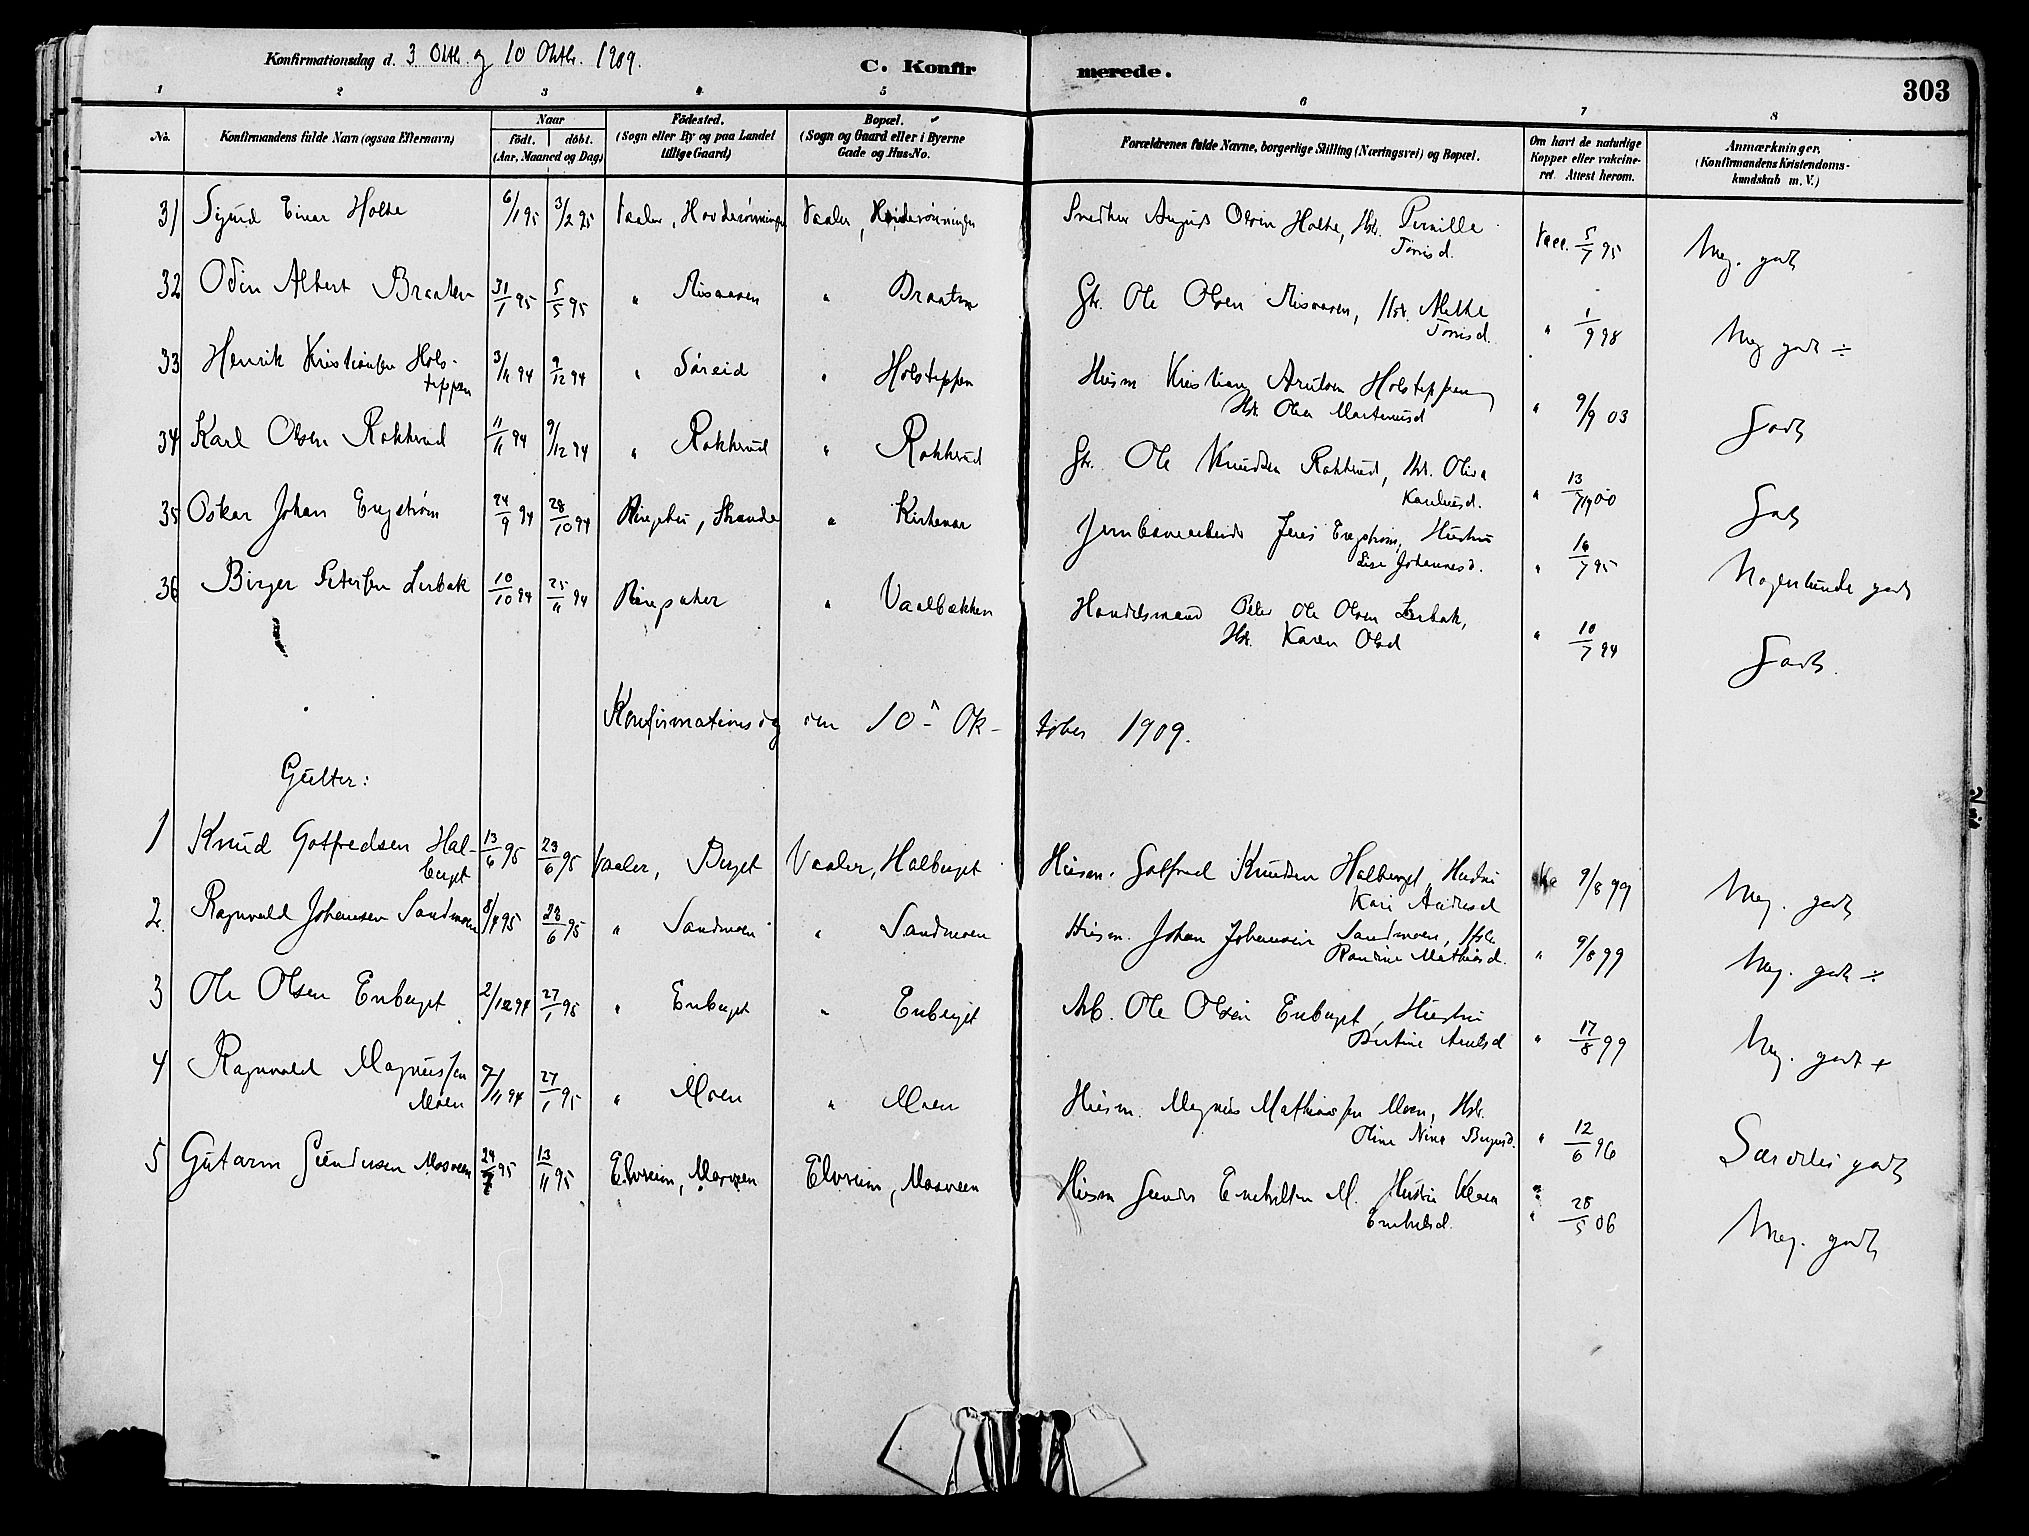 Konfirmationsdag d. 3 Oktb. og 10 Oktbr. 1909.
C. Konfirmerede.
303
1 2 3 4 5 6 7 8
No. Konfirmandens fulde Navn (ogsaa Efternavn) Naar födt. döbt. (Aar, Maaned og Dag) Födested. (Sogn eller By og paa Landet tillige Gaard) Bopæl. (Sogn og Gaard eller i Byerne Gade og Hus-No. Forældrenes fulde Navne, borgerlige Stilling (Næringsvei) og Bopæl. Om havt de naturlige Kopper eller vakcineret. Attest herom. Anmærkninger. (Konfirmandens Kristendomskundskab m. V.)
31 Sigurd Einar Holte 6/1 95 3/2 95 Vaaler, Vaaler, Snedker August Olsen Holte, Hst. Pernille
Tørrisd. Vacc. 5/7 95 Meg. godt
32 Odin Albert Braaten 31/1 95 5/5 95 " Risaasen " Braaten Gbr. Ole Olsen Risaasen, Hst. Mathe
Tørrisd. " 1/9 98 Meg godt ÷
33 Henrik Kristiansen Hols-
teppen 3/11 94 9/12 94 " Søreid " Holsteppen Husm Kristian Holsteppen
Hst. Olea Martinusd " 9/9 03 Godt
34 Karl Olsen Rokkerud 11/11 94 9/12 94 " Rokkerud " Rokkerud Gbr. Ole Knudsen Rokkerud, Hst. Oliva
Kareliusd. " 13/7 1900 Godt
35 Oskar Johan Engstrøm 24/9 94 28/10 94 Ringebu, " Kirkenær Jernbanearbeider Engstrøm, Hustru
Lise Johannesd. " 16/7 95 Nogenlunde godt
36 Birger Petersen Lerbak 10/10 94 25/11 94 Ringsaker " Vaalbækken Handelsmand Peter Ole Olsen Lerbak,
Hst. Karen Olsd " 10/7 94 Godt.
Konfirmationsdag den 10de Oktober 1909.
Gutter:
1 Knud Gotfredsen Hal-
berget 13/6 95 23/6 95 Vaaler, Berget Vaaler, Halberget Husm. Gotfred Knudsen Halberget, Hustru
Kari Andersd 9/8 99 Meg. godt
2. Ragnvald Johansen Sandmoen 8/4 95 23/6 95 " Sandmoen " Sandmoen Husm. Johan Johansen Sandmoen, Hst.
Randine Mathiasd. " 9/8 99 Meg. godt ÷
3 Ole Olsen Enberget 2/12 94 27/1 95 " Enberget " Enberget Arb. Ole Olsen Enberget, Hustru
Bertine " 17/8 99 Meg. godt +
4 Ragnvald Magnussen
Moen 7/11 94 27/1 95 " Moen " Moen Husm. Magnus Mathiassen Moen, Hst.
Oline " 12/6 96 Særdeles godt
5 Gutarm Gundersen Mosveen 24/7 95 13/11 95 Elverum, Mosveen Elverum, Mosveen Husm Gunder M. Hustru
" 28/5 06 Meg. godt